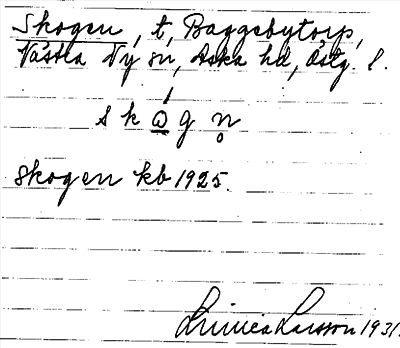 Skogen, t, Baggebytorp,
Västra Ny sn, Aska hd, Östg. l.
sko̲gn̥
Skogen kb 1925.
Linnéa Larsson 1931.